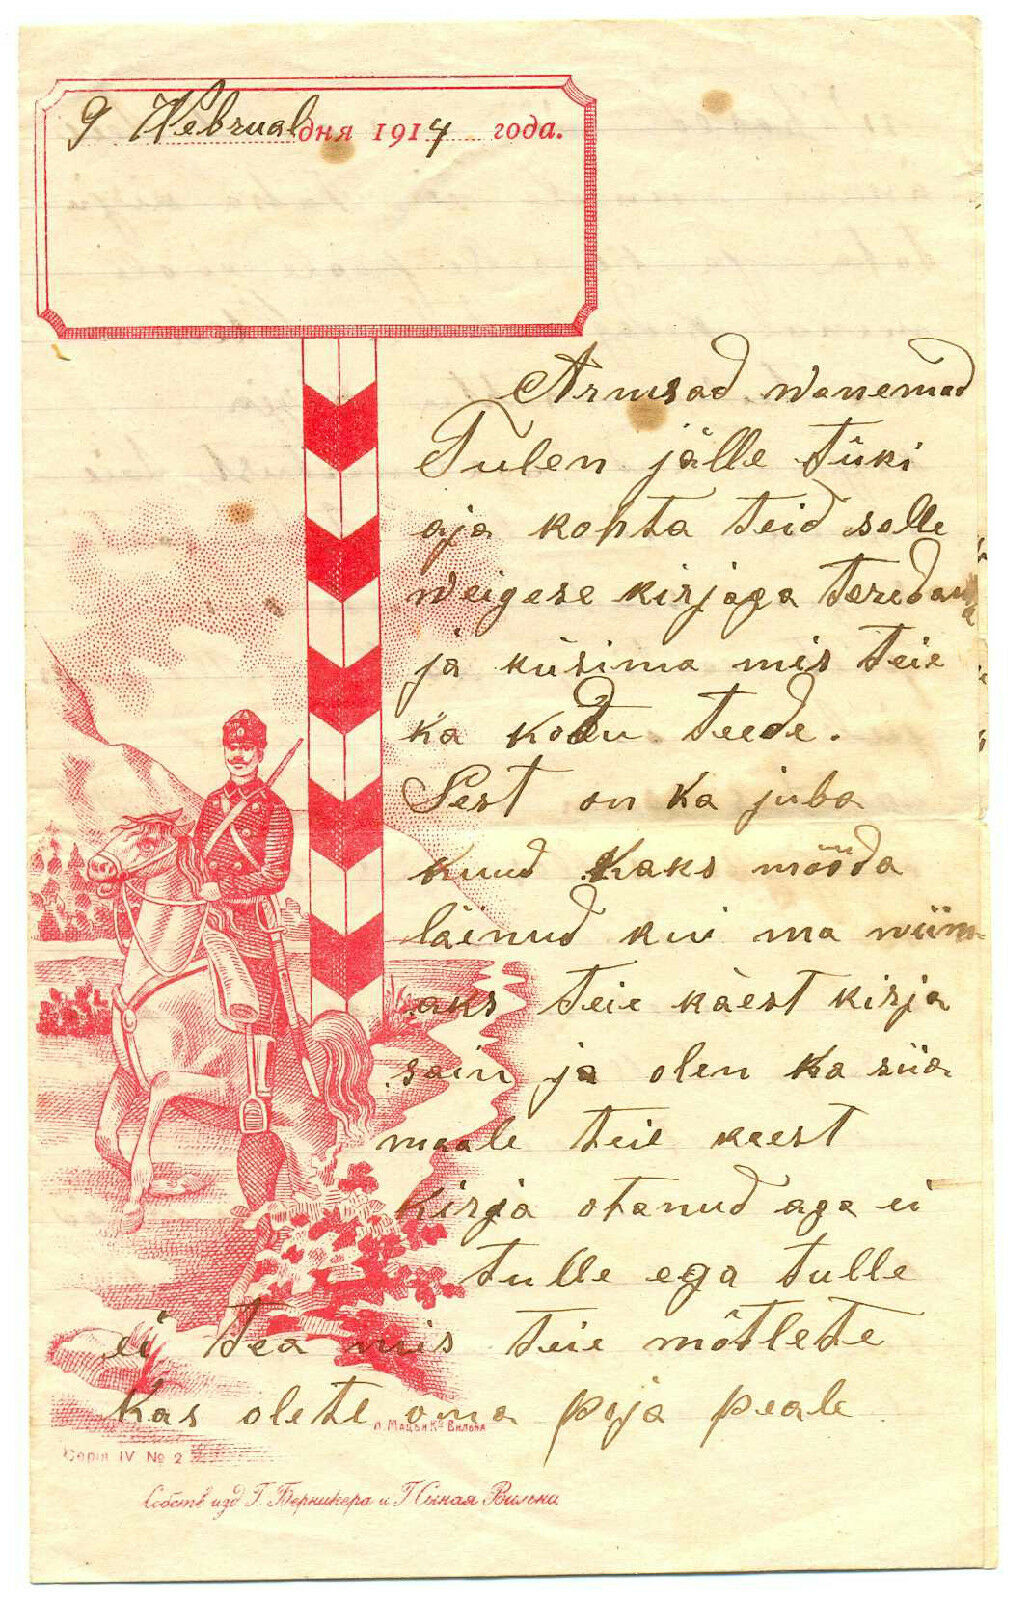 9 Webrual дня 1914 года.
Armsad wanemad
Tulen jälle tüki
aja kohta teid selle
weigese kirjaga teredama
ja küsima mis teie
ka kodu teede.
Sest on ka juba
kuud kaks mööda
läinud kui ma wiim-
aks teie käest kirja
sain ja olen ka siia
maale teie kaest
kirja otanud aga ei
tulle ega tulle
ei tea mis teie mõtlete
kas olete oma poja peale
Л. Мацъ и Ко Вильна
Серія IV № 2
Собств изд Г. Берникера и Сыная Вильна